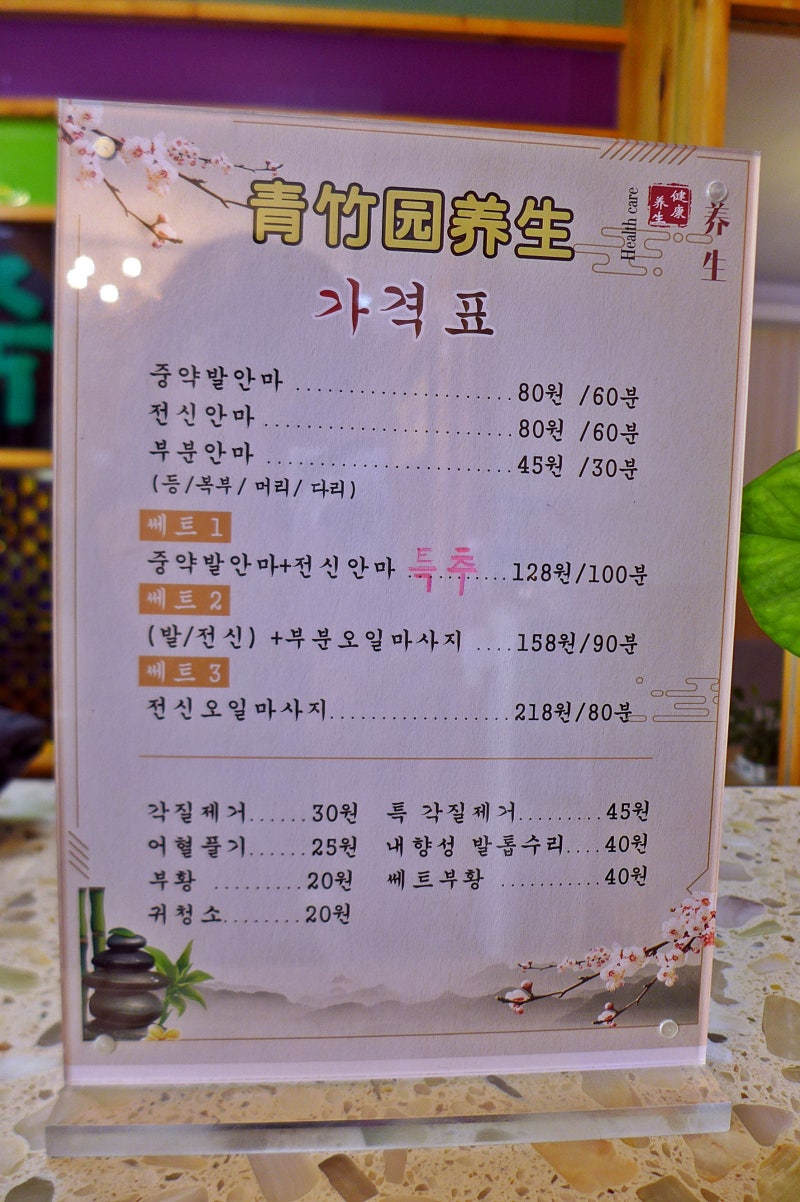 青竹园养生
Health care
健康
养生
养生
가격표
중약발안마 ........................ 80원 /60분
전신안마 ........................... 80원 /60분
부분안마 ........................... 45원 /30분
(등/복부/머리/다리)
쎄트 1
중약발안마+전신안마 특추 ........... 128원/100분
쎄트 2
(발/전신) +부분오일마사지 .... 158원/90분
쎄트 3
전신오일마사지.................... 218원/80분
각질제거...... 30원 특 각질제거......... 45원
어혈풀기...... 25원 내향성 발톱수리.... 40원
부황 ......... 20원 쎄트부황 ........... 40원
귀청소........ 20원